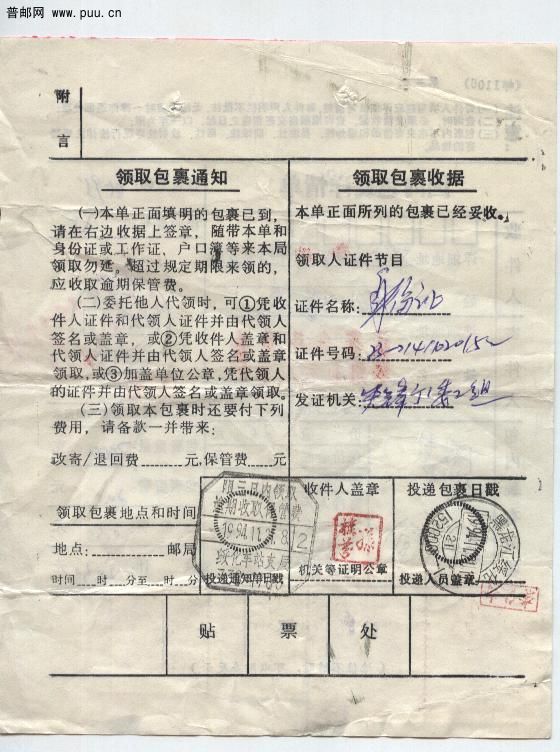 普邮网 www.puu.cn
附
言
领取包裹通知
(一)本单正面填明的包裹已到,
请在右边收据上签章, 随带本单和
身份证或工作证, 户口簿等来本局
领取勿延。超过规定期限来领的,
应收取逾期保管费。
(二)委托他人代领时, 可①凭收
件人证件和代领人证件并由代领人
签名或盖章, 或②凭收件人盖章和
代领人证件并由代领人签名或盖章
领取, 或③加盖单位公章, 凭代领人
的证件并由代领人签名或盖章领取。
(三)领取本包裹时还要付下列
费用, 请备款一并带来:
改寄/退回费 元, 保管费 元
领取包裹地点和时间
地点: 邮局
时间 时 分至 时 分
领取包裹收据
本单正面所列的包裹已经妥收。
领取人证件节目
证件名称: 身份证
证件号码:
发证机关:
限三日内领取
逾期收取保管费
1994.11.
绥化车站支局
投递通知单日戳
收件人盖章
机关等证明公章
投递包裹日戳
黑龙江绥化
投递人员盖章
贴 票 处